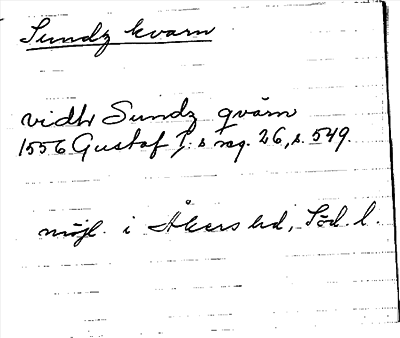 Sundz kvarn
vidh Sundz qvärn
1556 Gustaf I:s reg. 26, s. 549.
möjl. i Åkers hd, Söd. l.